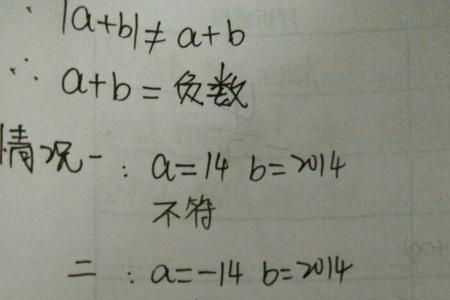 ∵ |a+b|≠a+b
∴ a+b=负数
情况一：a=14 b=2014
不符
二：a=-14 b=2014